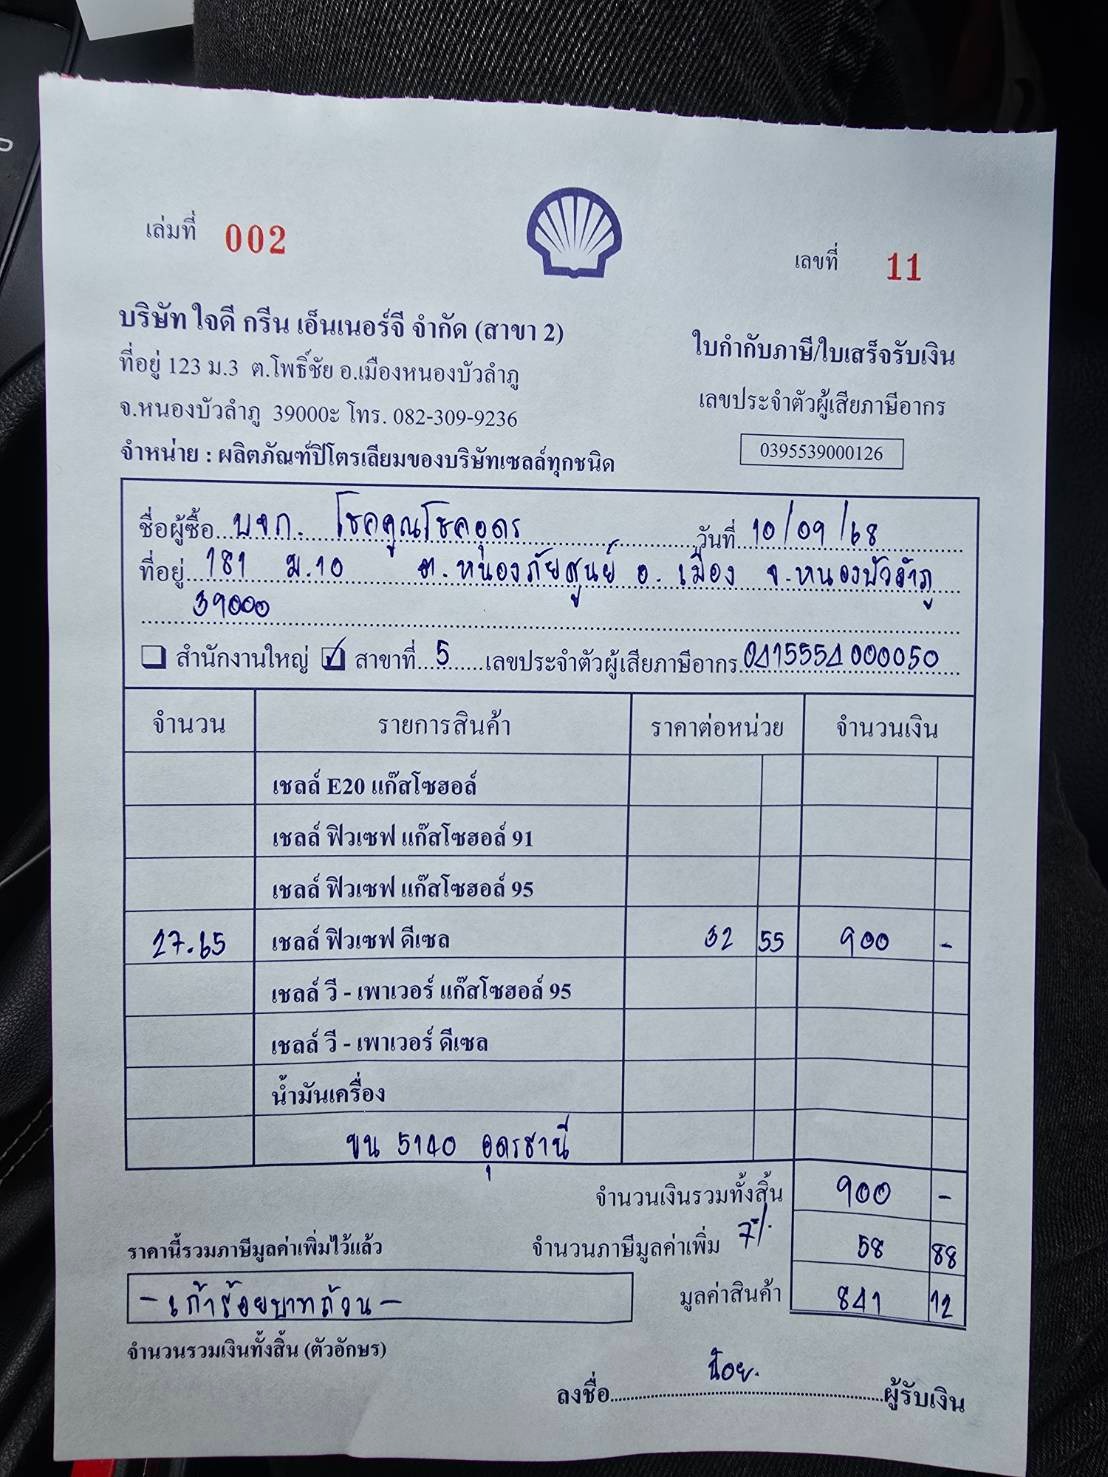 เล่มที่ 002
เลขที่ 11
บริษัท ใจดี กรีน เอ็นเนอร์จี จำกัด (สาขา 2)
ที่อยู่ 123 ม.3 ต.โพธิ์ชัย อ.เมืองหนองบัวลำภู
จ.หนองบัวลำภู 39000ะ โทร. 082-309-9236
จำหน่าย : ผลิตภัณฑ์ปิโตรเลียมของบริษัทเชลล์ทุกชนิด
ใบกำกับภาษี/ใบเสร็จรับเงิน
เลขประจำตัวผู้เสียภาษีอากร
0395539000126
ชื่อผู้ซื้อ บจก. โชคคูณโชคอุดร วันที่ 10/09/68
ที่อยู่ 181 ม.10 ต.หนองภัยศูนย์ อ.เมือง จ.หนองบัวลำภู
39000
สำนักงานใหญ่ ✓ สาขาที่ 5 เลขประจำตัวผู้เสียภาษีอากร 0415554000050
จำนวน รายการสินค้า ราคาต่อหน่วย จำนวนเงิน
เชลล์ E20 แก๊สโซฮอล์
เชลล์ ฟิวเซฟ แก๊สโซฮอล์ 91
เชลล์ ฟิวเซฟ แก๊สโซฮอล์ 95
27.65 เชลล์ ฟิวเซฟ ดีเซล 32 55 900 -
เชลล์ วี - เพาเวอร์ แก๊สโซฮอล์ 95
เชลล์ วี - เพาเวอร์ ดีเซล
น้ำมันเครื่อง
ขน 5140 อุดรธานี
จำนวนเงินรวมทั้งสิ้น 900 -
ราคานี้รวมภาษีมูลค่าเพิ่มไว้แล้ว
จำนวนภาษีมูลค่าเพิ่ม 7% 58 88
- เก้าร้อยบาทถ้วน -
มูลค่าสินค้า 841 12
จำนวนรวมเงินทั้งสิ้น (ตัวอักษร)
ลงชื่อ น้อย. ผู้รับเงิน